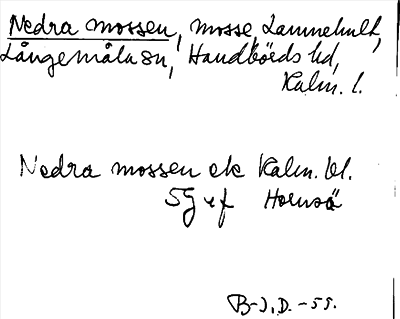 Nedra mossen, mosse, Lamnehult,
Långemåla sn, Handbörds hd,
Kalm. l.
Nedra mossen ek Kalm. bl.
5G vf Hornsö
B-J. D. -55.